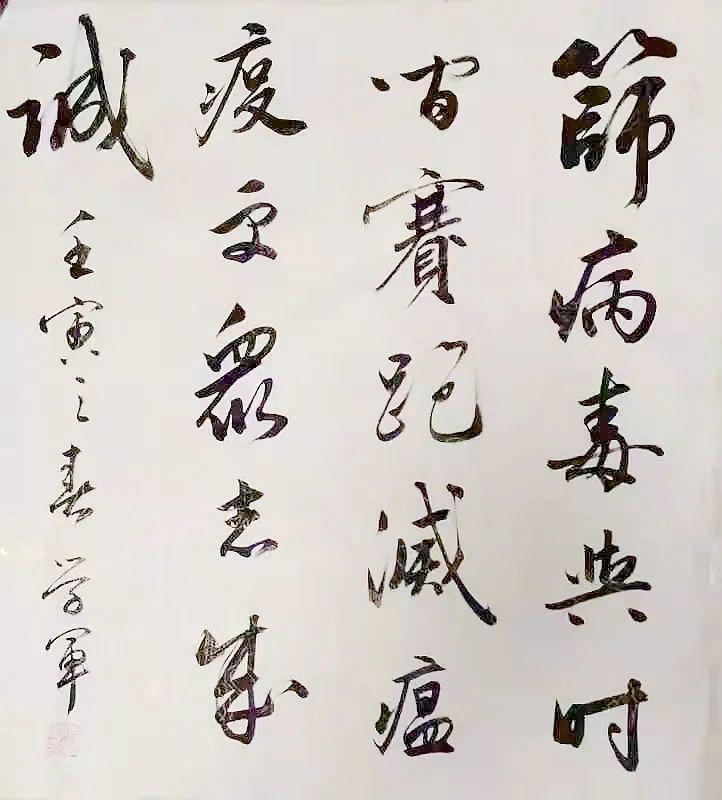 篩病毒與时
间賽跑滅瘟
疫更衆志成
誠
壬寅之春 学军